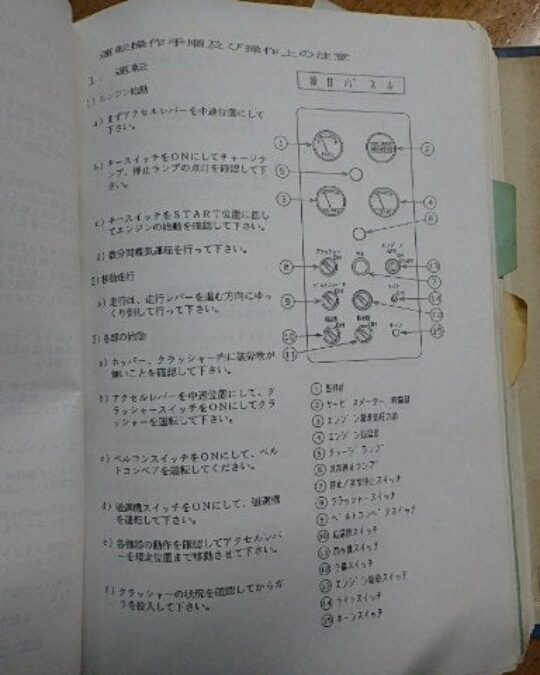 運転操作手順及び操作上の注意
1. 運転
1) エンジン始動
a) まずアクセルレバーを中速位置にして
下さい。
b) キースイッチをONにしてチャージラ
ンプ、停止ランプの点灯を確認して下
さい。
c) キースイッチをSTART位置に回し
てエンジンの始動を確認して下さい。
d) 数分間暖気運転を行って下さい。
2) 移動走行
a) 走行は、走行レバーを進む方向にゆっ
くり倒して行って下さい。
3) 各部の始動
a) ホッパー、クラッシャー内に被砕物が
無いことを確認して下さい。
b) アクセルレバーを中速位置にして、ク
ラッシャースイッチをONにしてクラ
ッシャーを運転して下さい。
c) ベルコンスイッチをONにして、ベル
トコンベアを運転してください。
d) 磁選機スイッチをONにして、磁選機
を運転して下さい。
e) 各機器の動作を確認してアクセルレバ
ーを規定位置まで移動させて下さい。
f) クラッシャーの状況を確認してからガ
ラを投入して下さい。
操作パネル
① ②
⑤
③ ④
⑥
クラッシャー エンジン
⑧ ⑬
⑦
ベルトコンベア ライト
⑨ ⑭
⑫
ホーン
⑩ ⑪ ⑮
①
② サービスメーター
③ エンジン
④ エンジン
⑤ チャージランプ
⑥ 非常停止ランプ
⑦ 停止/非常停止スイッチ
⑧ クラッシャースイッチ
⑨ ベルトコンベアスイッチ
⑩ 磁選機スイッチ
⑪ スイッチ
⑫ スイッチ
⑬ エンジン始動スイッチ
⑭ ライトスイッチ
⑮ ホーンスイッチ